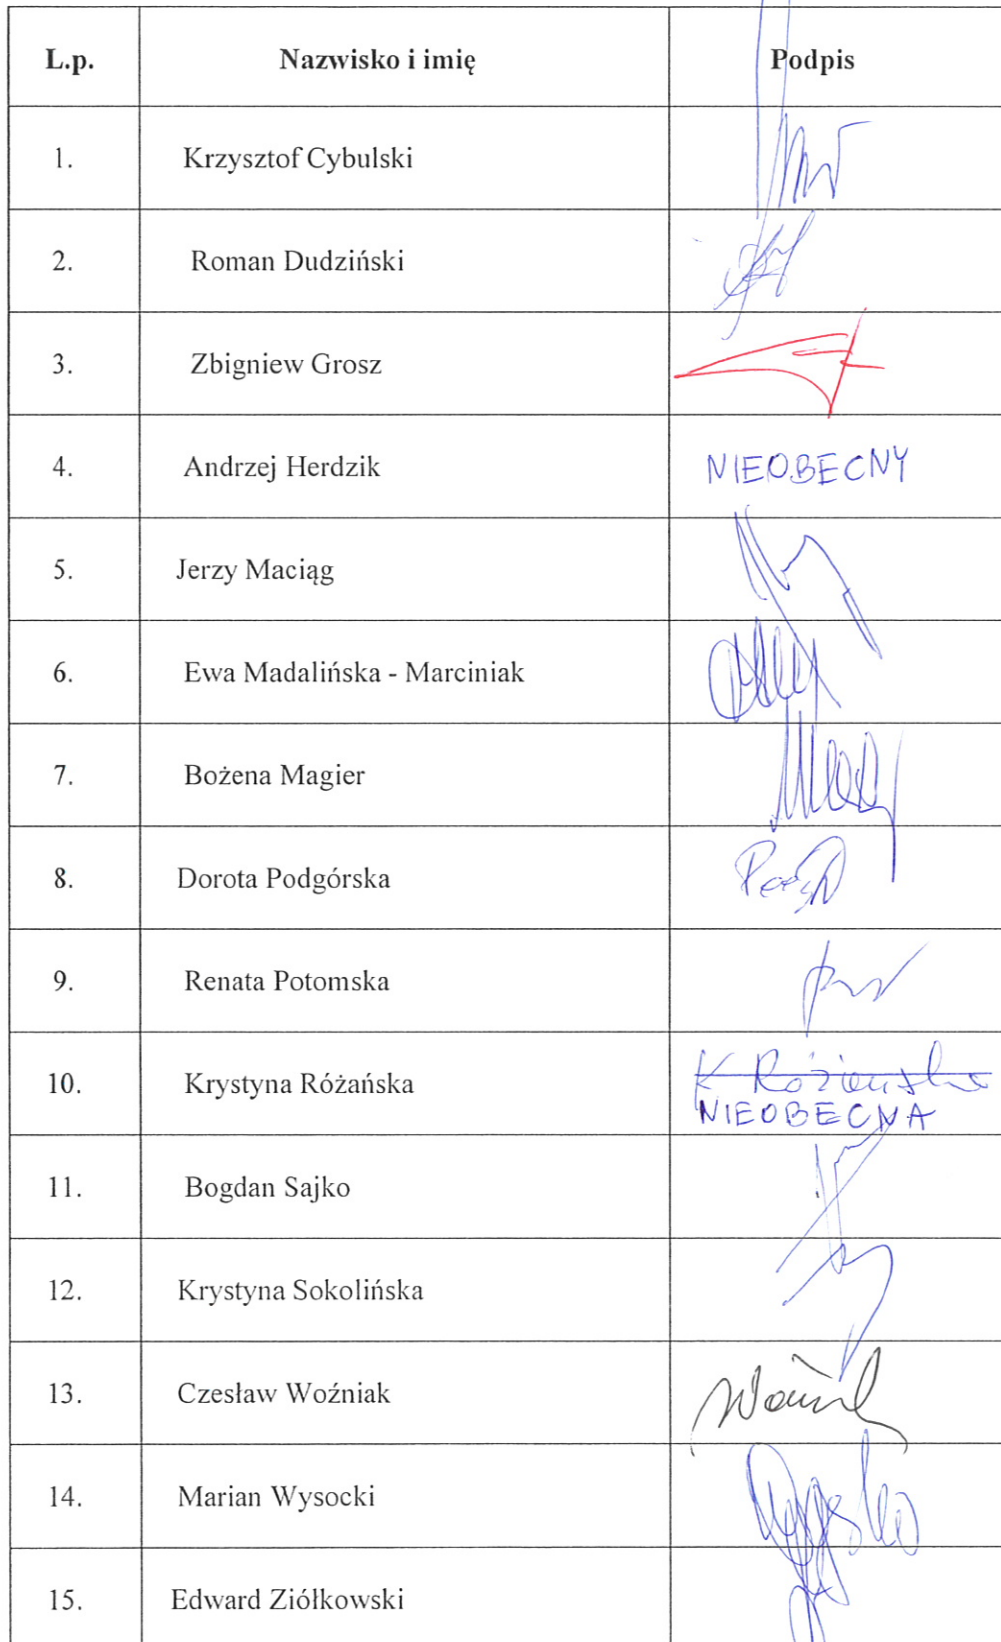 L.p. Nazwisko i imię Podpis
1. Krzysztof Cybulski
2. Roman Dudziński
3. Zbigniew Grosz
4. Andrzej Herdzik NIEOBECNY
5. Jerzy Maciąg
6. Ewa Madalińska - Marciniak
7. Bożena Magier
8. Dorota Podgórska
9. Renata Potomska
10. Krystyna Różańska K Różańska
NIEOBECNA
11. Bogdan Sajko
12. Krystyna Sokolińska
13. Czesław Woźniak
14. Marian Wysocki
15. Edward Ziółkowski